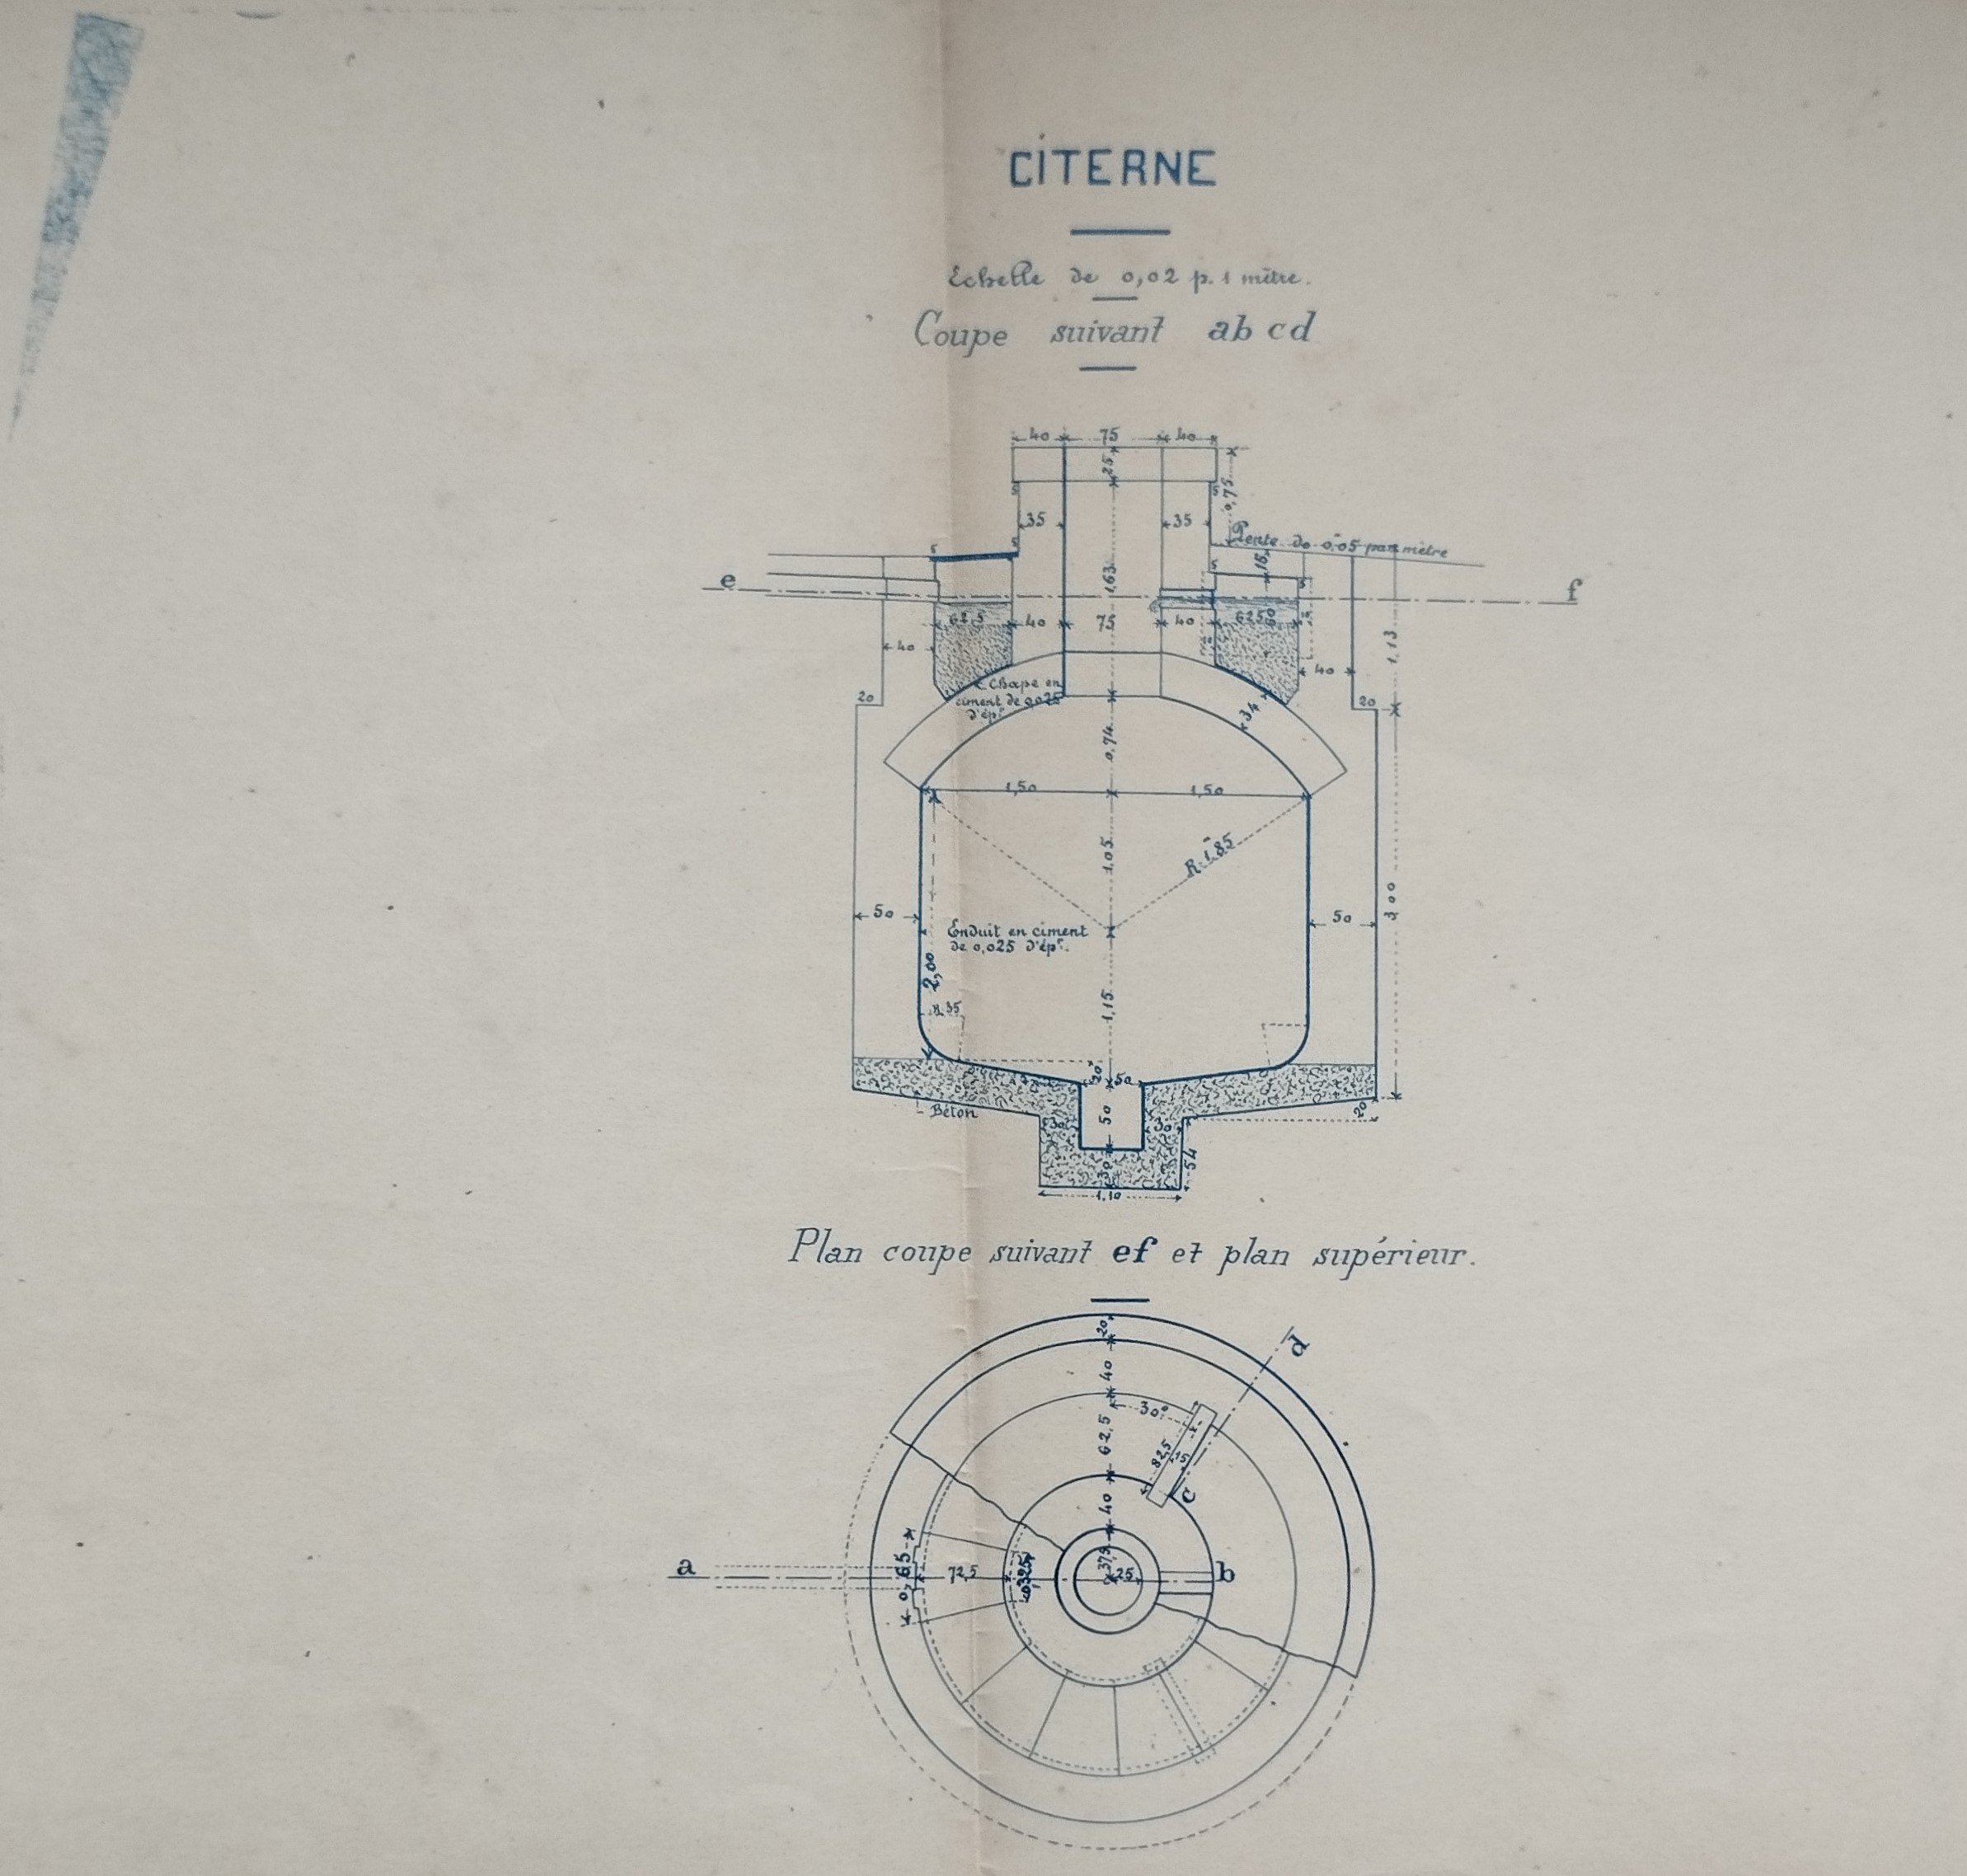 CITERNE
Echelle de 0,02 p. 1 mètre.
Coupe suivant ab cd
40 75 40
25
5 5
0,75
35 35
Pente de 0,05 par mètre
5 5
15
5 5
e f
1,63
62,5 40 75 40 62,5
40 40
1,13
Chape en
ciment de 0,025
d'épr
20 20
34
0,74
1,50 1,50
1,05
R. 1,85
50 50
3,00
Enduit en ciment
de 0,025 d'épr.
2,00
R. 35
1,15
20 50
Béton
50
30 30
20
54
30
1,10
Plan coupe suivant ef et plan supérieur.
20
d
40
30°
62,5
82,5
15
c
40
a 0,65 72,5 0,325 37,5 25 b